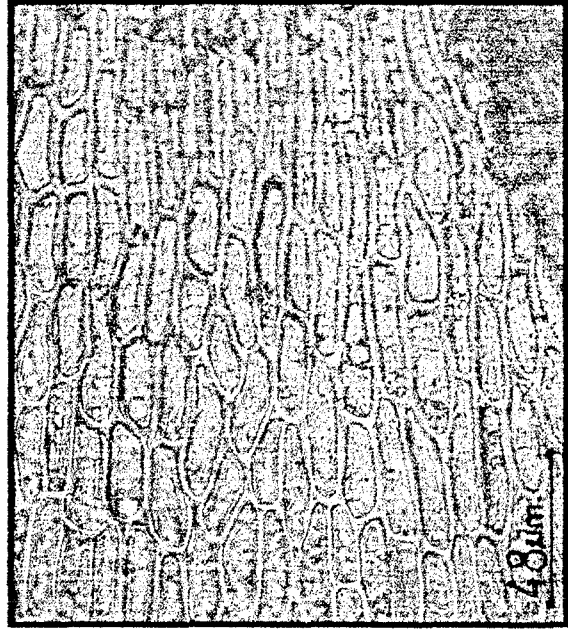 48µm